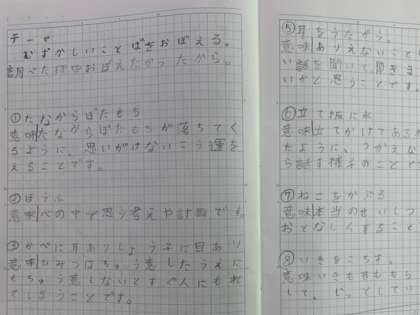 テーマ
むずかしいことばをおぼえる。
調べた おぼえたかったから。
①たなからぼたもち
意味 たなからぼたもちが落ちてく
るように、思いがけないこう運を
えることです。
②ほうふ
意味 心の中で思う考えや計画です。
③かべに耳ありしょう子に目あり
意味 ひみつはちゅう意したうえに
もちゅう意しないとすぐ人にもれ
てしまうことです。
⑤耳をうたがう。
意味 ありえないこと
い話を聞いて、聞きま
いかと思うことです。
⑥立て板に水
意味 立てかけてある
たように、つかえな
ら話す様子のことで
⑦ねこをかぶる
意味 本当のせいしつ
おとなしくすること
⑧いきをころす。
意味 いきも
して、じっとしてい